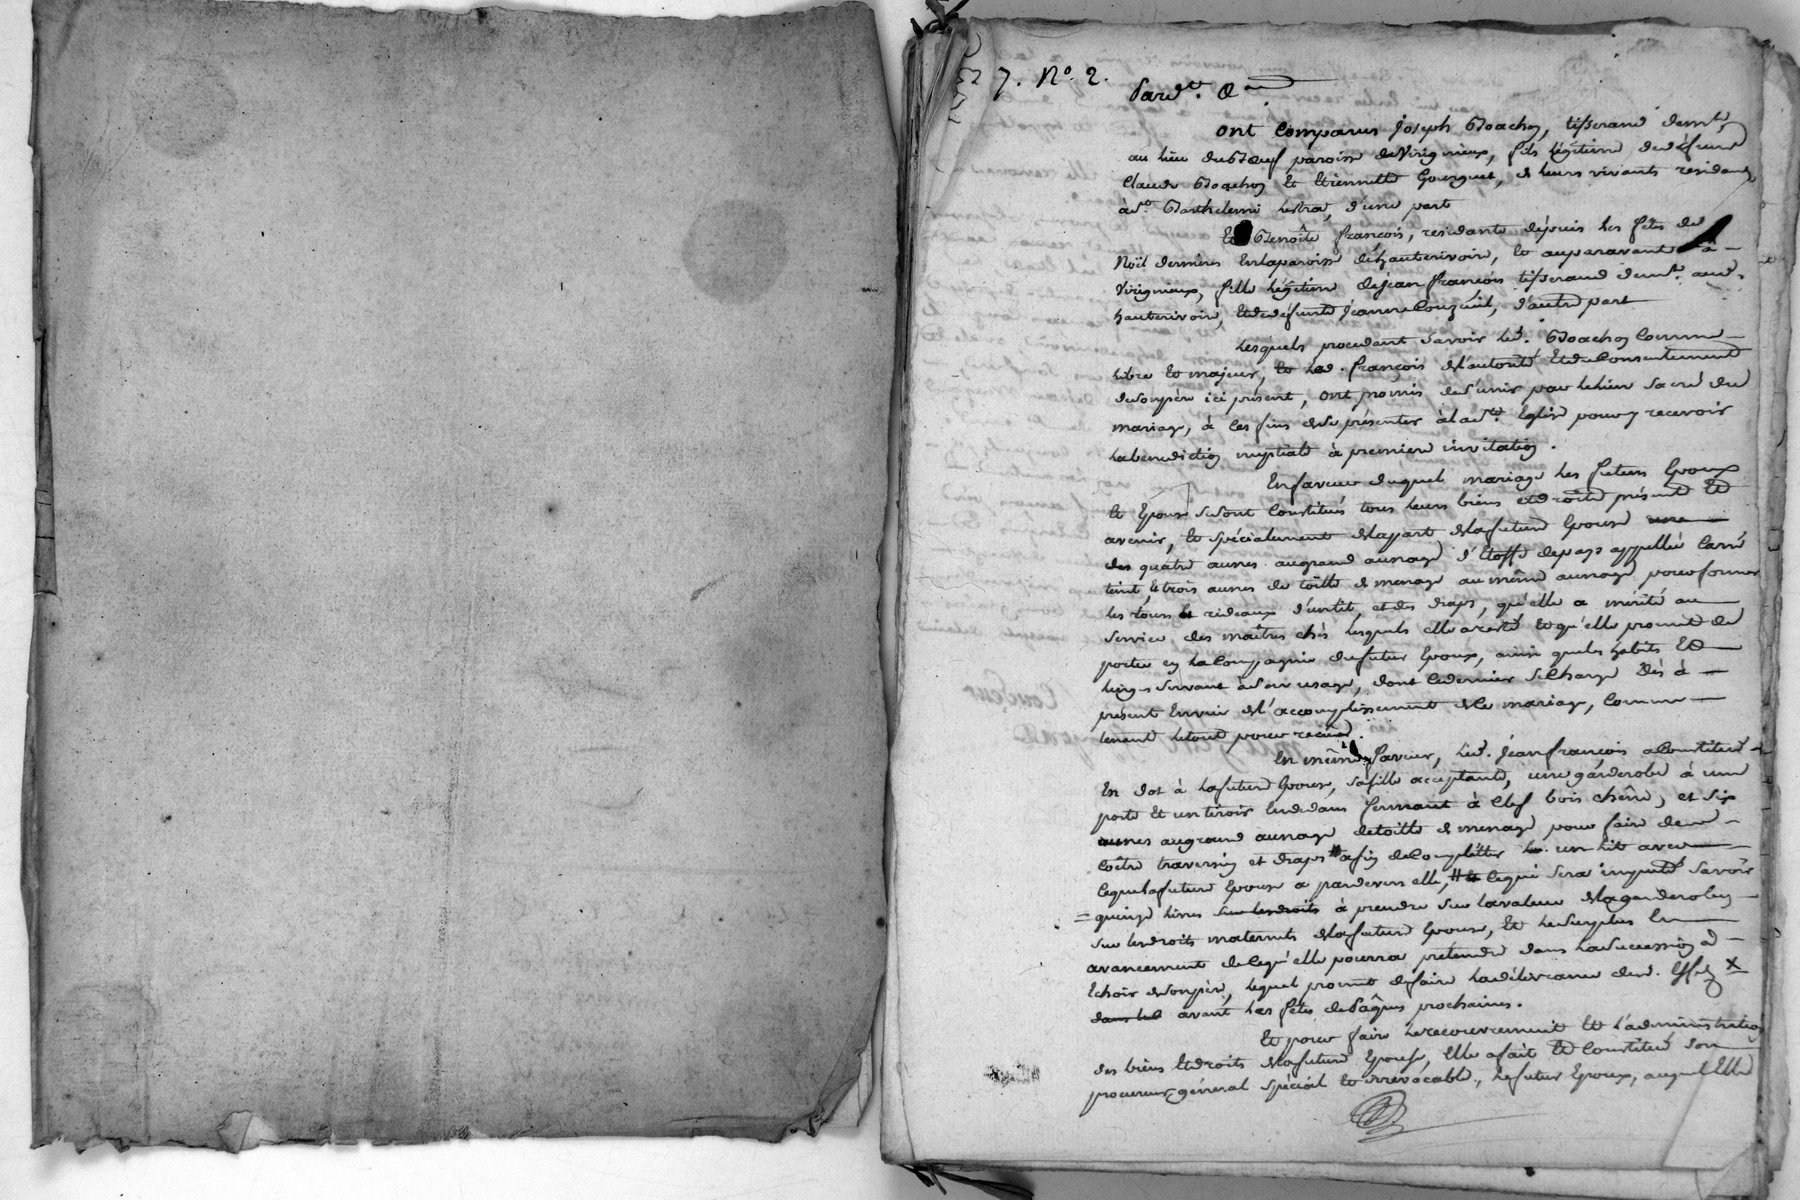 7. N°. 2.
Pardt. &c.
ont comparus Joseph Goachoz, tisserand demt.
au lieu du Boeuf paroisse de Virigneux, fils légitime de défunt
Claude Goachoz et Etiennette Gourguet, de leurs vivants residants
à St. Barthelemi Lestra, d'une part
Et Benoîte françois, residante depuis les fêtes de
Noël dernières en la paroisse de hauterivoire, et auparavant à
Virigneux, fille légitime de jean françois tisserand demt. aud.
hauterivoire, et de défunte Jeanne Couzeuil, d'autre part
Lesquels procedant savoir led. Goachoz comme
libre et majeur, et lad. françois de l'autorité et du consentement
de son père ici présent, ont promis de s'unir par le lien sacré du
mariage, à ces fins de se présenter à la ste. Eglise pour y recevoir
la benediction nuptiale à premiere invitation.
En faveur duquel mariage les futurs Epoux
et Epouse se sont constitués tous leurs biens et droits présents et
avenir, et spécialement de la part de la future Epouse
des quatre aunes au grand aunage d'étoffe de pays appellée Carré
teint, et trois aunes de toille de menage au même aunage, pour former
les tours et rideaux d'un lit, et des draps, qu'elle a mérité au
service des maîtres chés lesquels elle a resté et qu'elle promet de
porter en la compagnie du futur Epoux, ainsi que les habits et
linges servant à son usage, dont ce dernier se charge dès à
présent en vue de l'accomplissement de ce mariage, comme
tenant le tout pour reçu.
En même faveur, led. jean françois a constitué
en dot à la future Epouse, sa fille acceptante, une garderobe à une
porte et un tiroir en dedans fermant à clef bois chêne, et six
aunes au grand aunage de toille de menage pour faire de
coître traversin et draps # afin de completter un lit avec
ce que la future Epouse a pardevers elle, # ce qui sera imputé savoir
= quinze livres sur les droits à prendre sur la valeur de la garderobe
sur les droits maternels de la future Epouse, et le surplus en
avancement de ce qu'elle pourra prétendre dans la succession à
échoir de son père, lequel promet de faire la délivrance desd. effets X
dans les avant les fêtes de Pâques prochaines.
Et pour faire le recouvrement et l'administration
des biens et droits de la future Epouse, elle a fait et constitué son
procureur général spécial et irrévocable, le futur Epoux, auquel elle